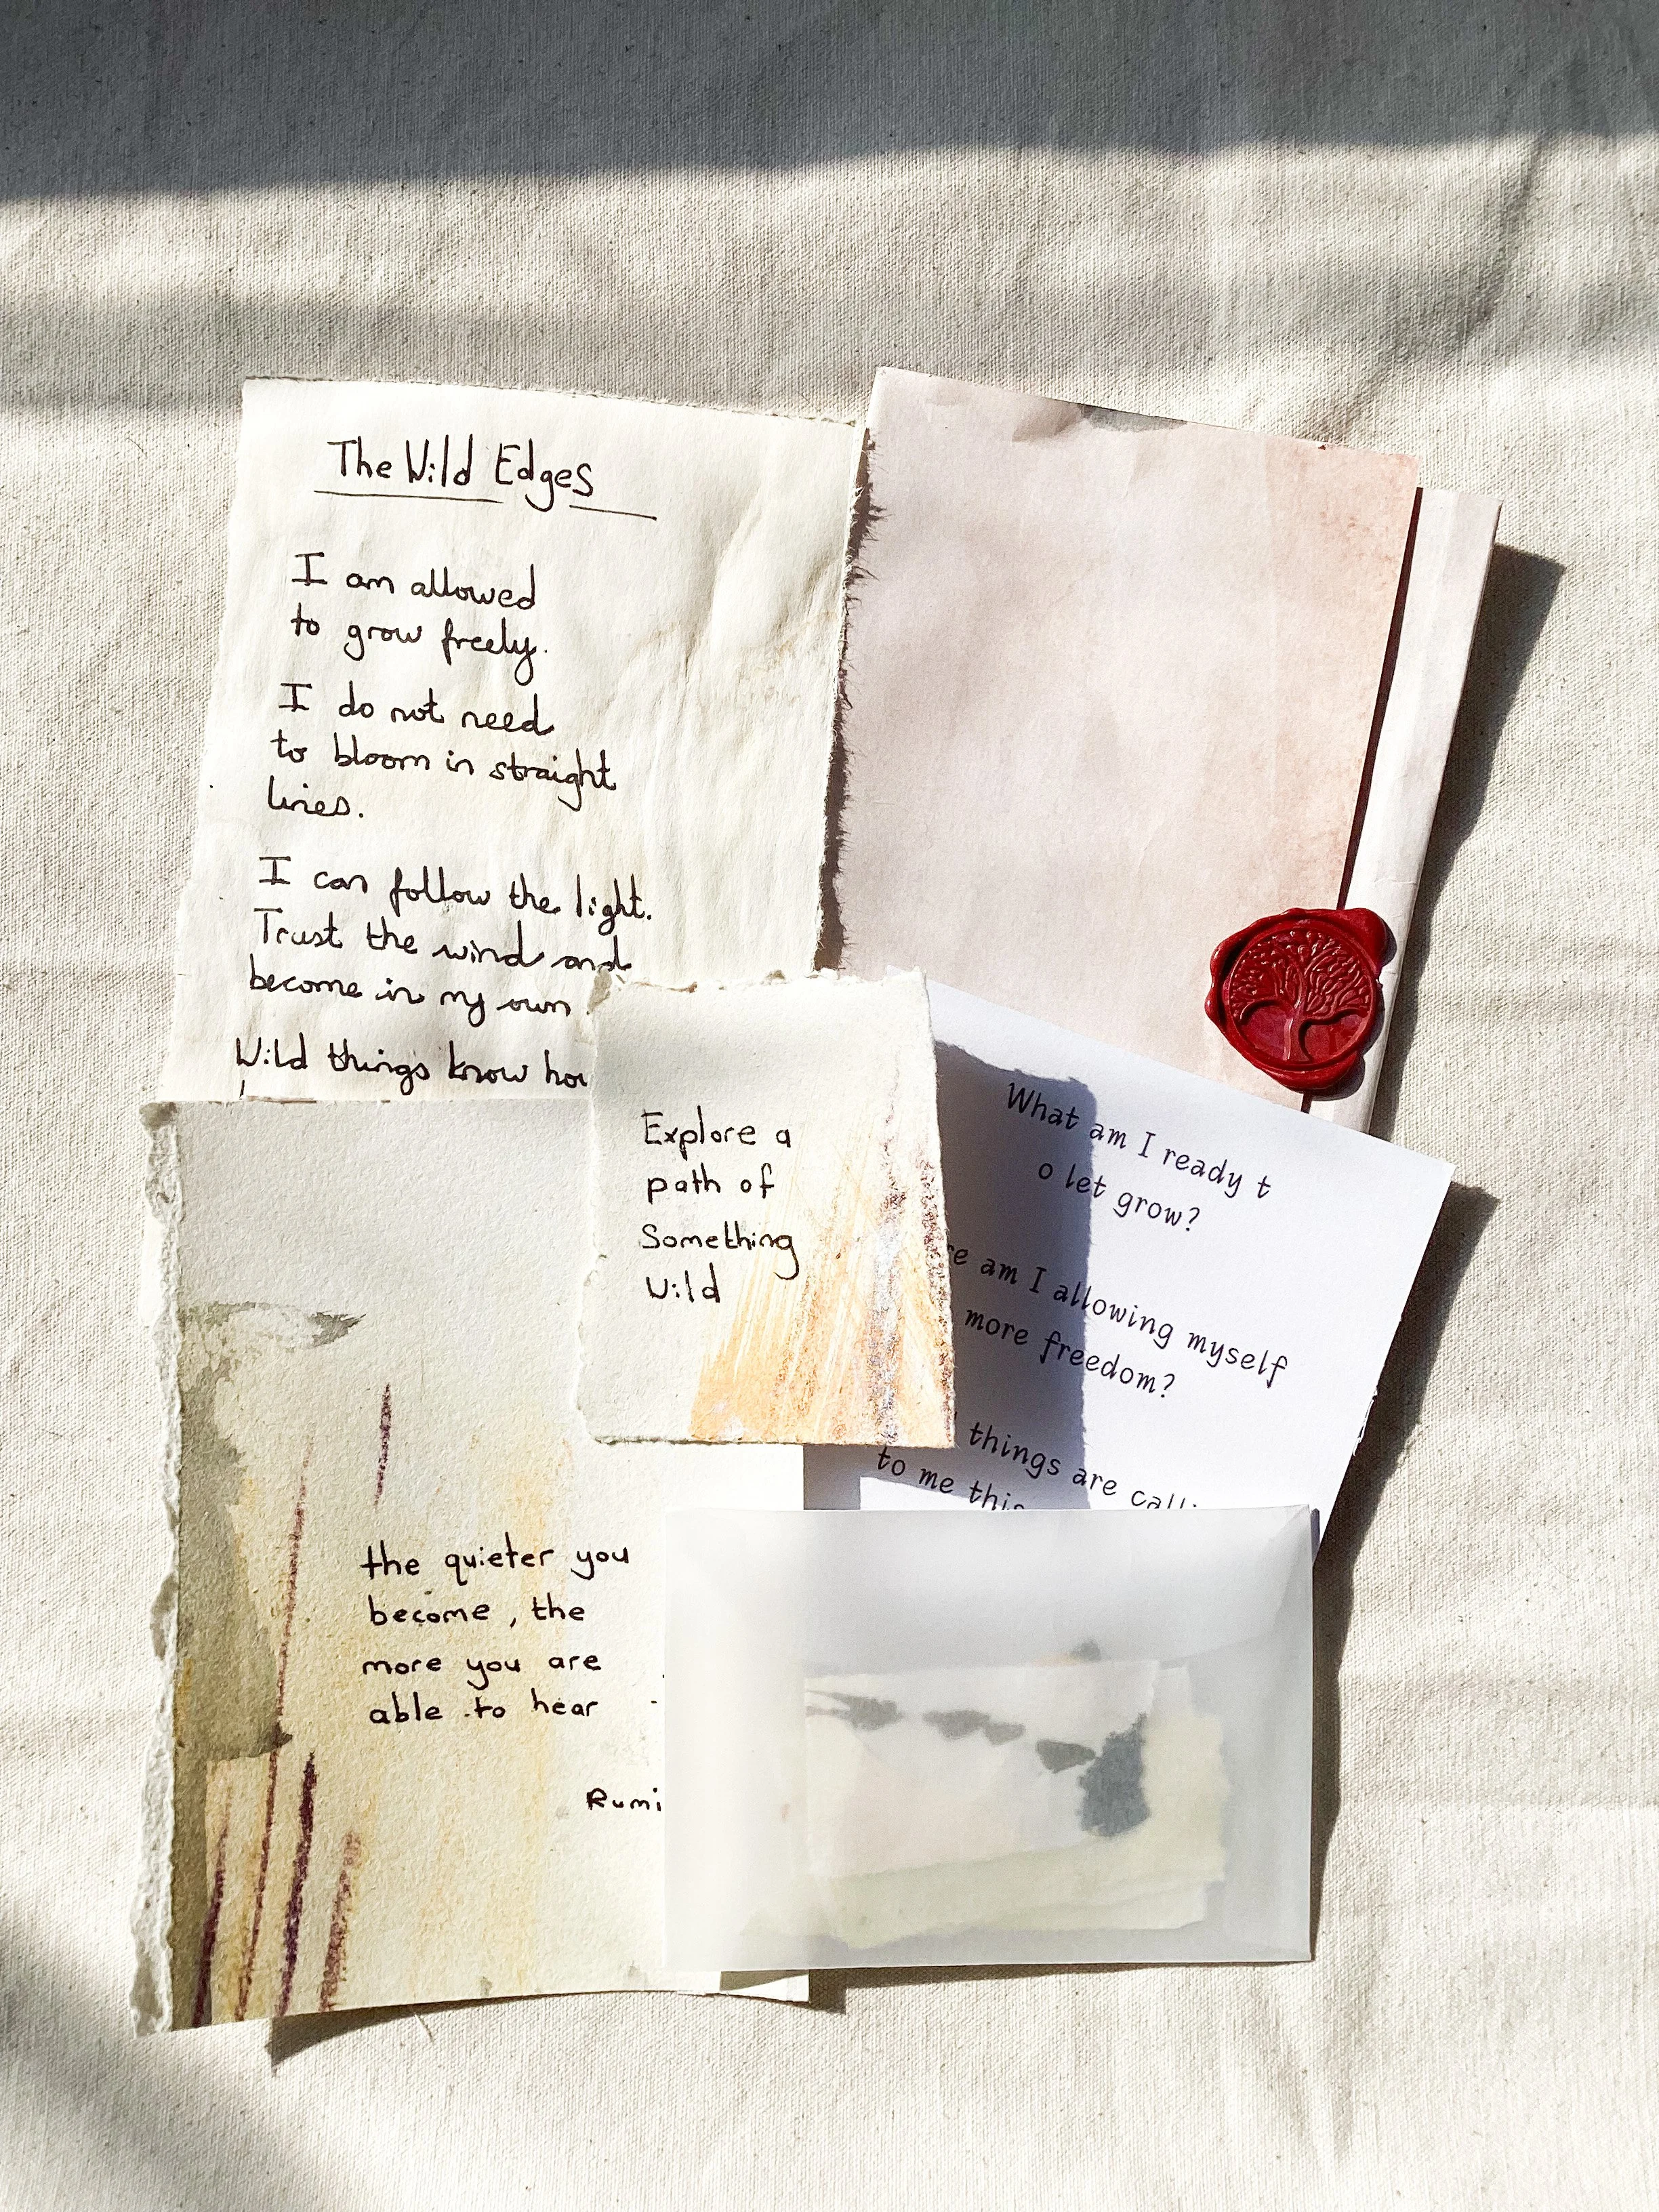 The Wild Edges
I am allowed
to grow freely.
I do not need
to bloom in straight
lines.
I can follow the light.
Trust the wind and
become in my own
Wild things know
Explore a
path of
Something
Wild
What am I ready t
o let grow?
am I allowing myself
more freedom?
things are
to me
the quieter you
become, the
more you are
able to hear
Rumi